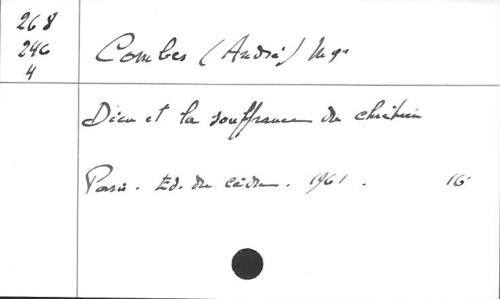 268
246
4
Combes (André) Mgr
Dieu et la souffrance du chrétien
Paris. Ed. du cèdre. 1961. 16°